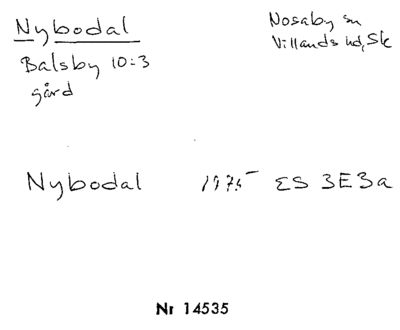 Nybodal
Nosaby sn
Balsby 10:3
Villands hd, Sk
gård
Nybodal 1975 ES 3E3a
Nr 14535